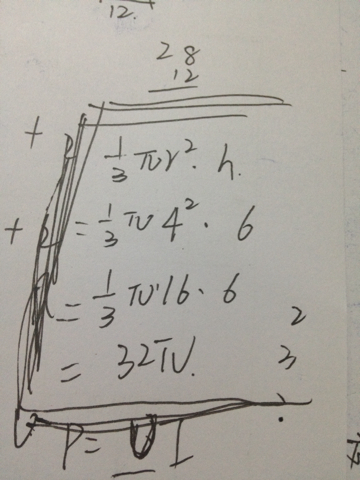 12.
28
12
1/3 πr². h.
= 1/3 π 4² · 6
= 1/3 π·16 · 6
= 32π.
2
3
P= U I